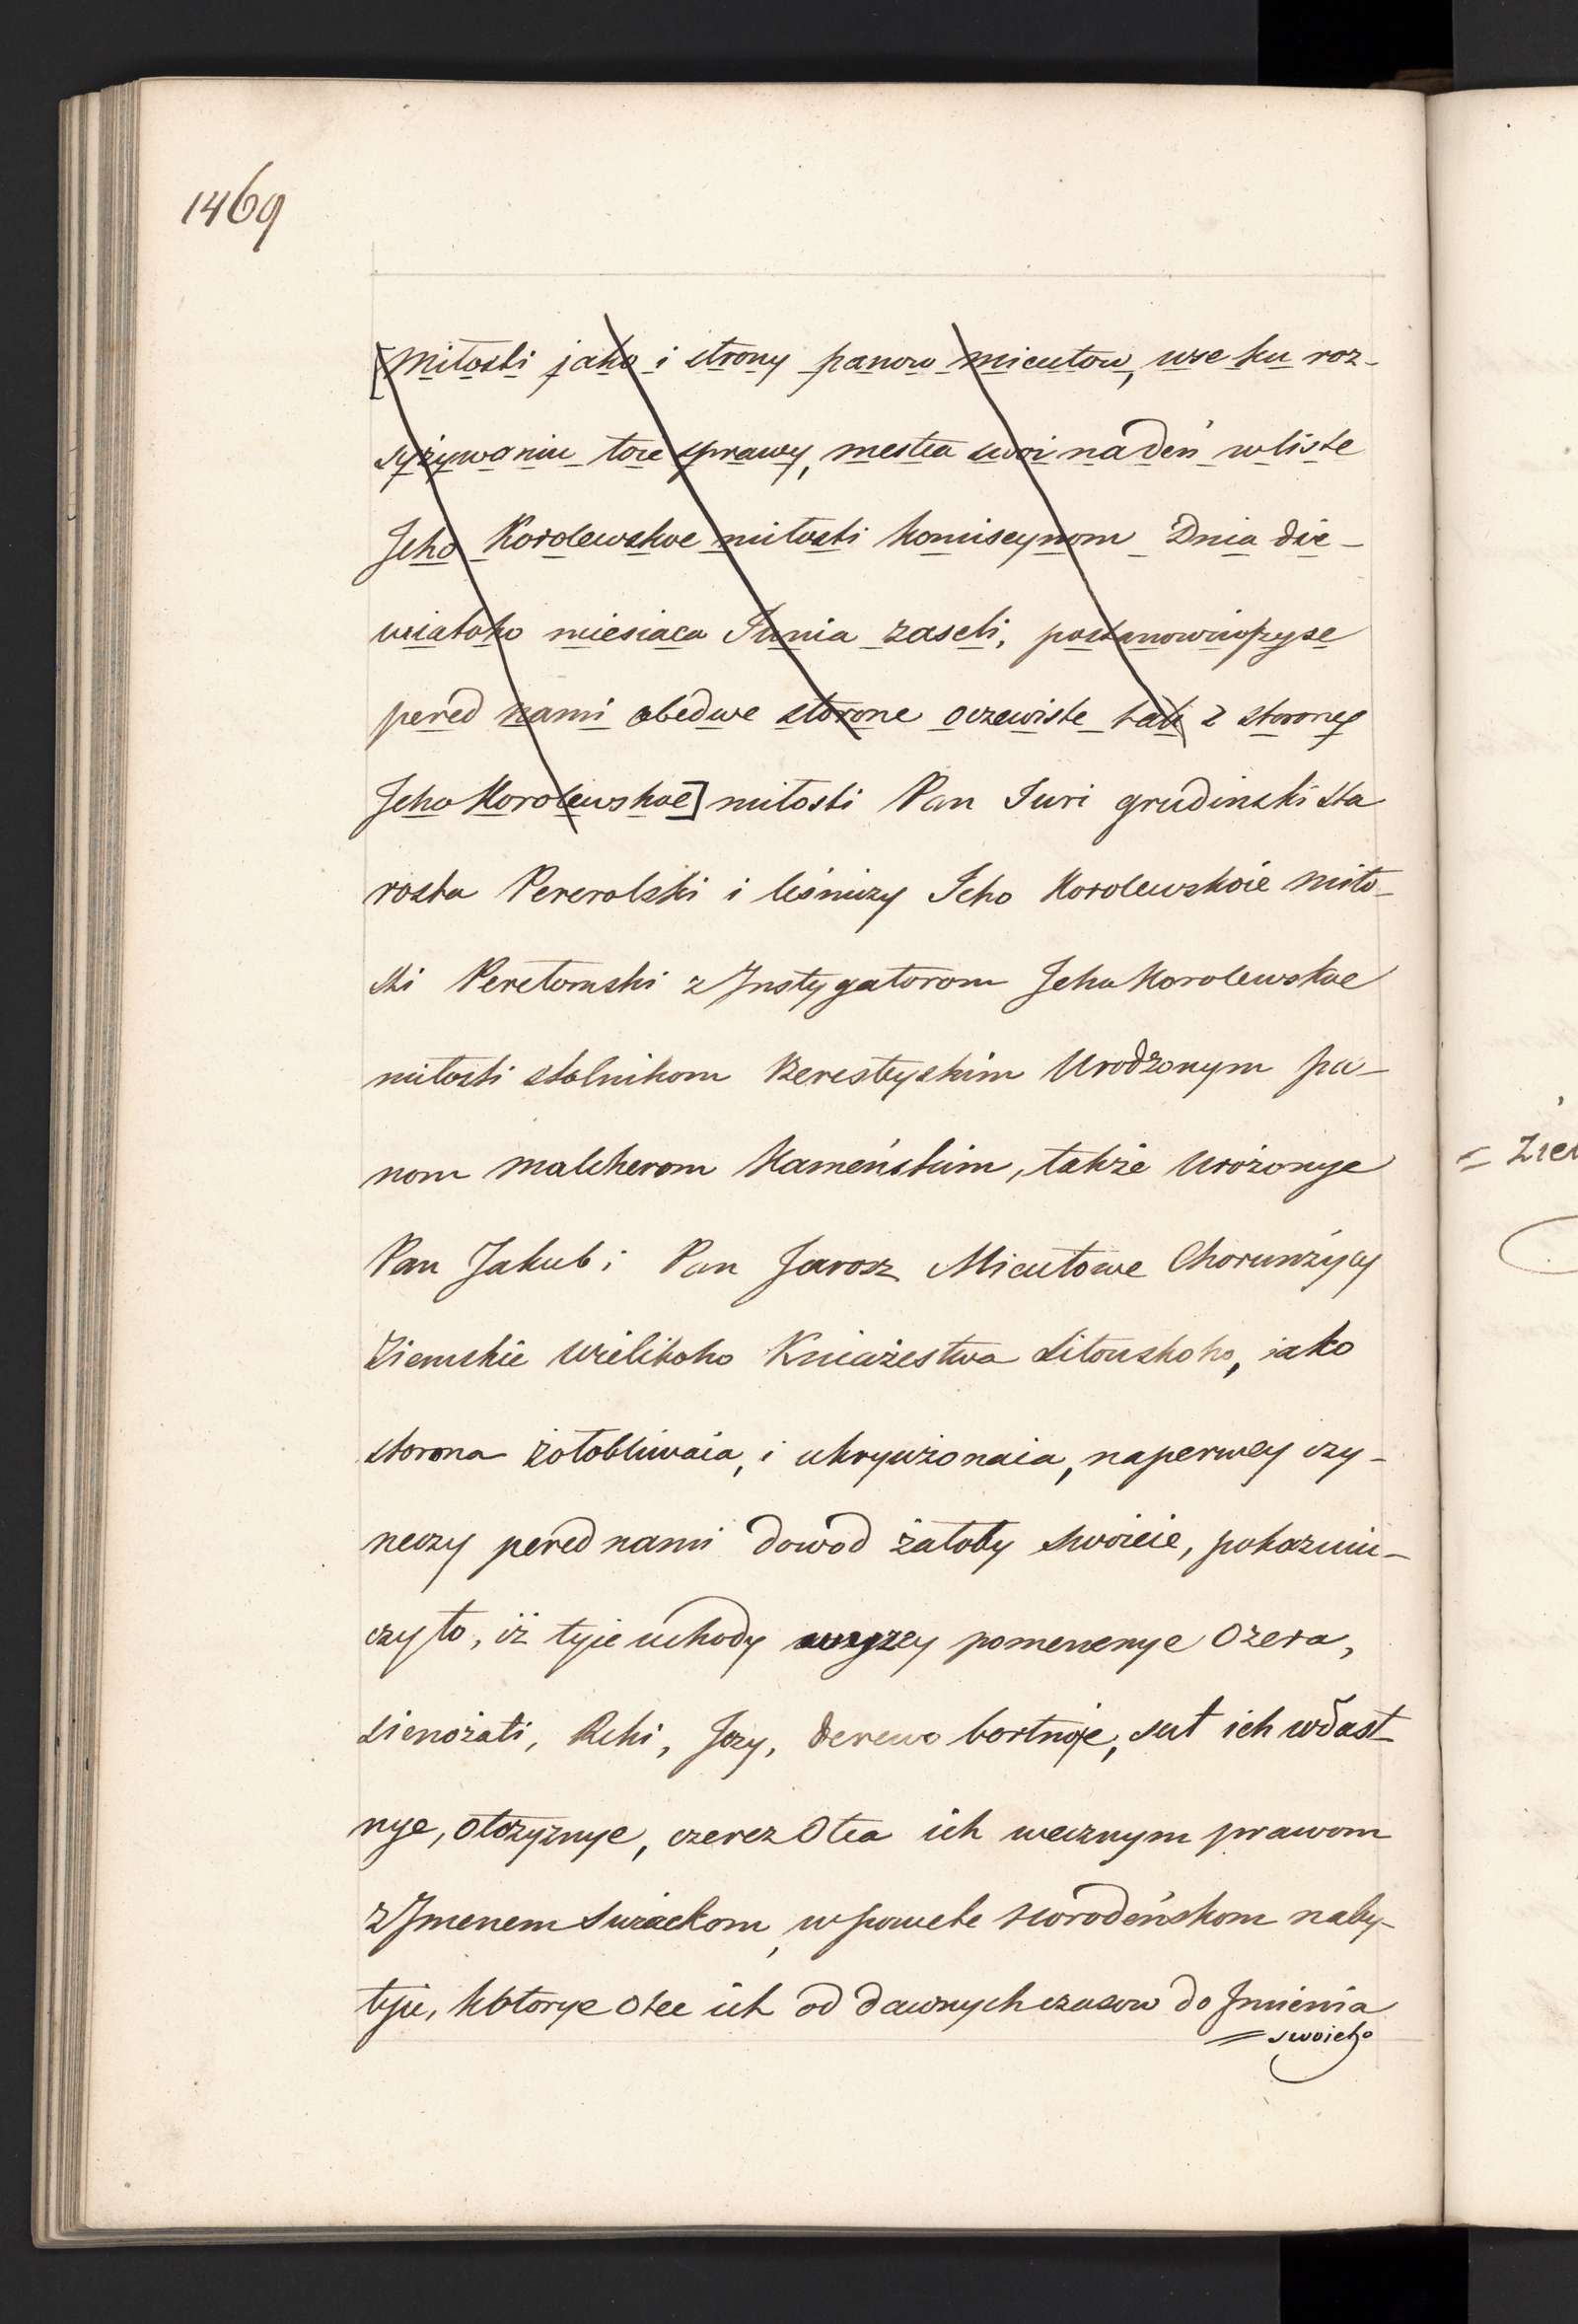 1469
[Miłosti jako i strony panow Micutow, wse ku roz-
syżywaniu toie sprawy, mestca swoi na deń w liste
Jeho Korolewskoe miłosti komiseynom Dnia die-
wiatoho miesiaca Iunia zaseli, postanowiwszyse
pered nami obedwe storone oczewiste tak z storony
Jeho Korolewskoe] miłosti Pan Iuri grudinski sta
rosta Pererolski i leśniczy Jeho Korolewskoie miło-
sti Perełomski z Instygatorom Jeho Korolewskoe
miłosti stolnikom Beresteyskim Urodzonym pa-
nom Malcherom Kameńskim, także Urożonye
Pan Jakub i Pan Jarosz Micutowe Chorunżycy
Ziemskie Wielikoho Kniażestwa Litouskoho, iako
storona żołobliwaia, i ukrywżonaia, naperwey czy-
neczy pered nami dowod żałoby swoieie, pokazuiu-
czy to, iż tyie uchody wyszey pomenenye Ozera,
Sienożati, Reki, Jezy, derewo bortnoje, sut ich włast
nye, otczyznye, czerez Otca ich wecznym prawom
z Jmenem Swiackom, w powete Horodeńskom naby-
tyie, kotorye Otec ich od dawnych czasow do Jmienia
= swoieho
= Ziem